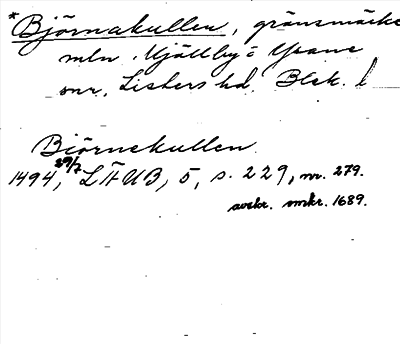 *Björnakullen, gränsmärke
mln. Mjällby o Ysane
snr, Listers hd, Blek. l
Biörnekullen.
1494, 29/7 LÄUB, 5, s. 229, nr. 279.
avskr. omkr. 1689.